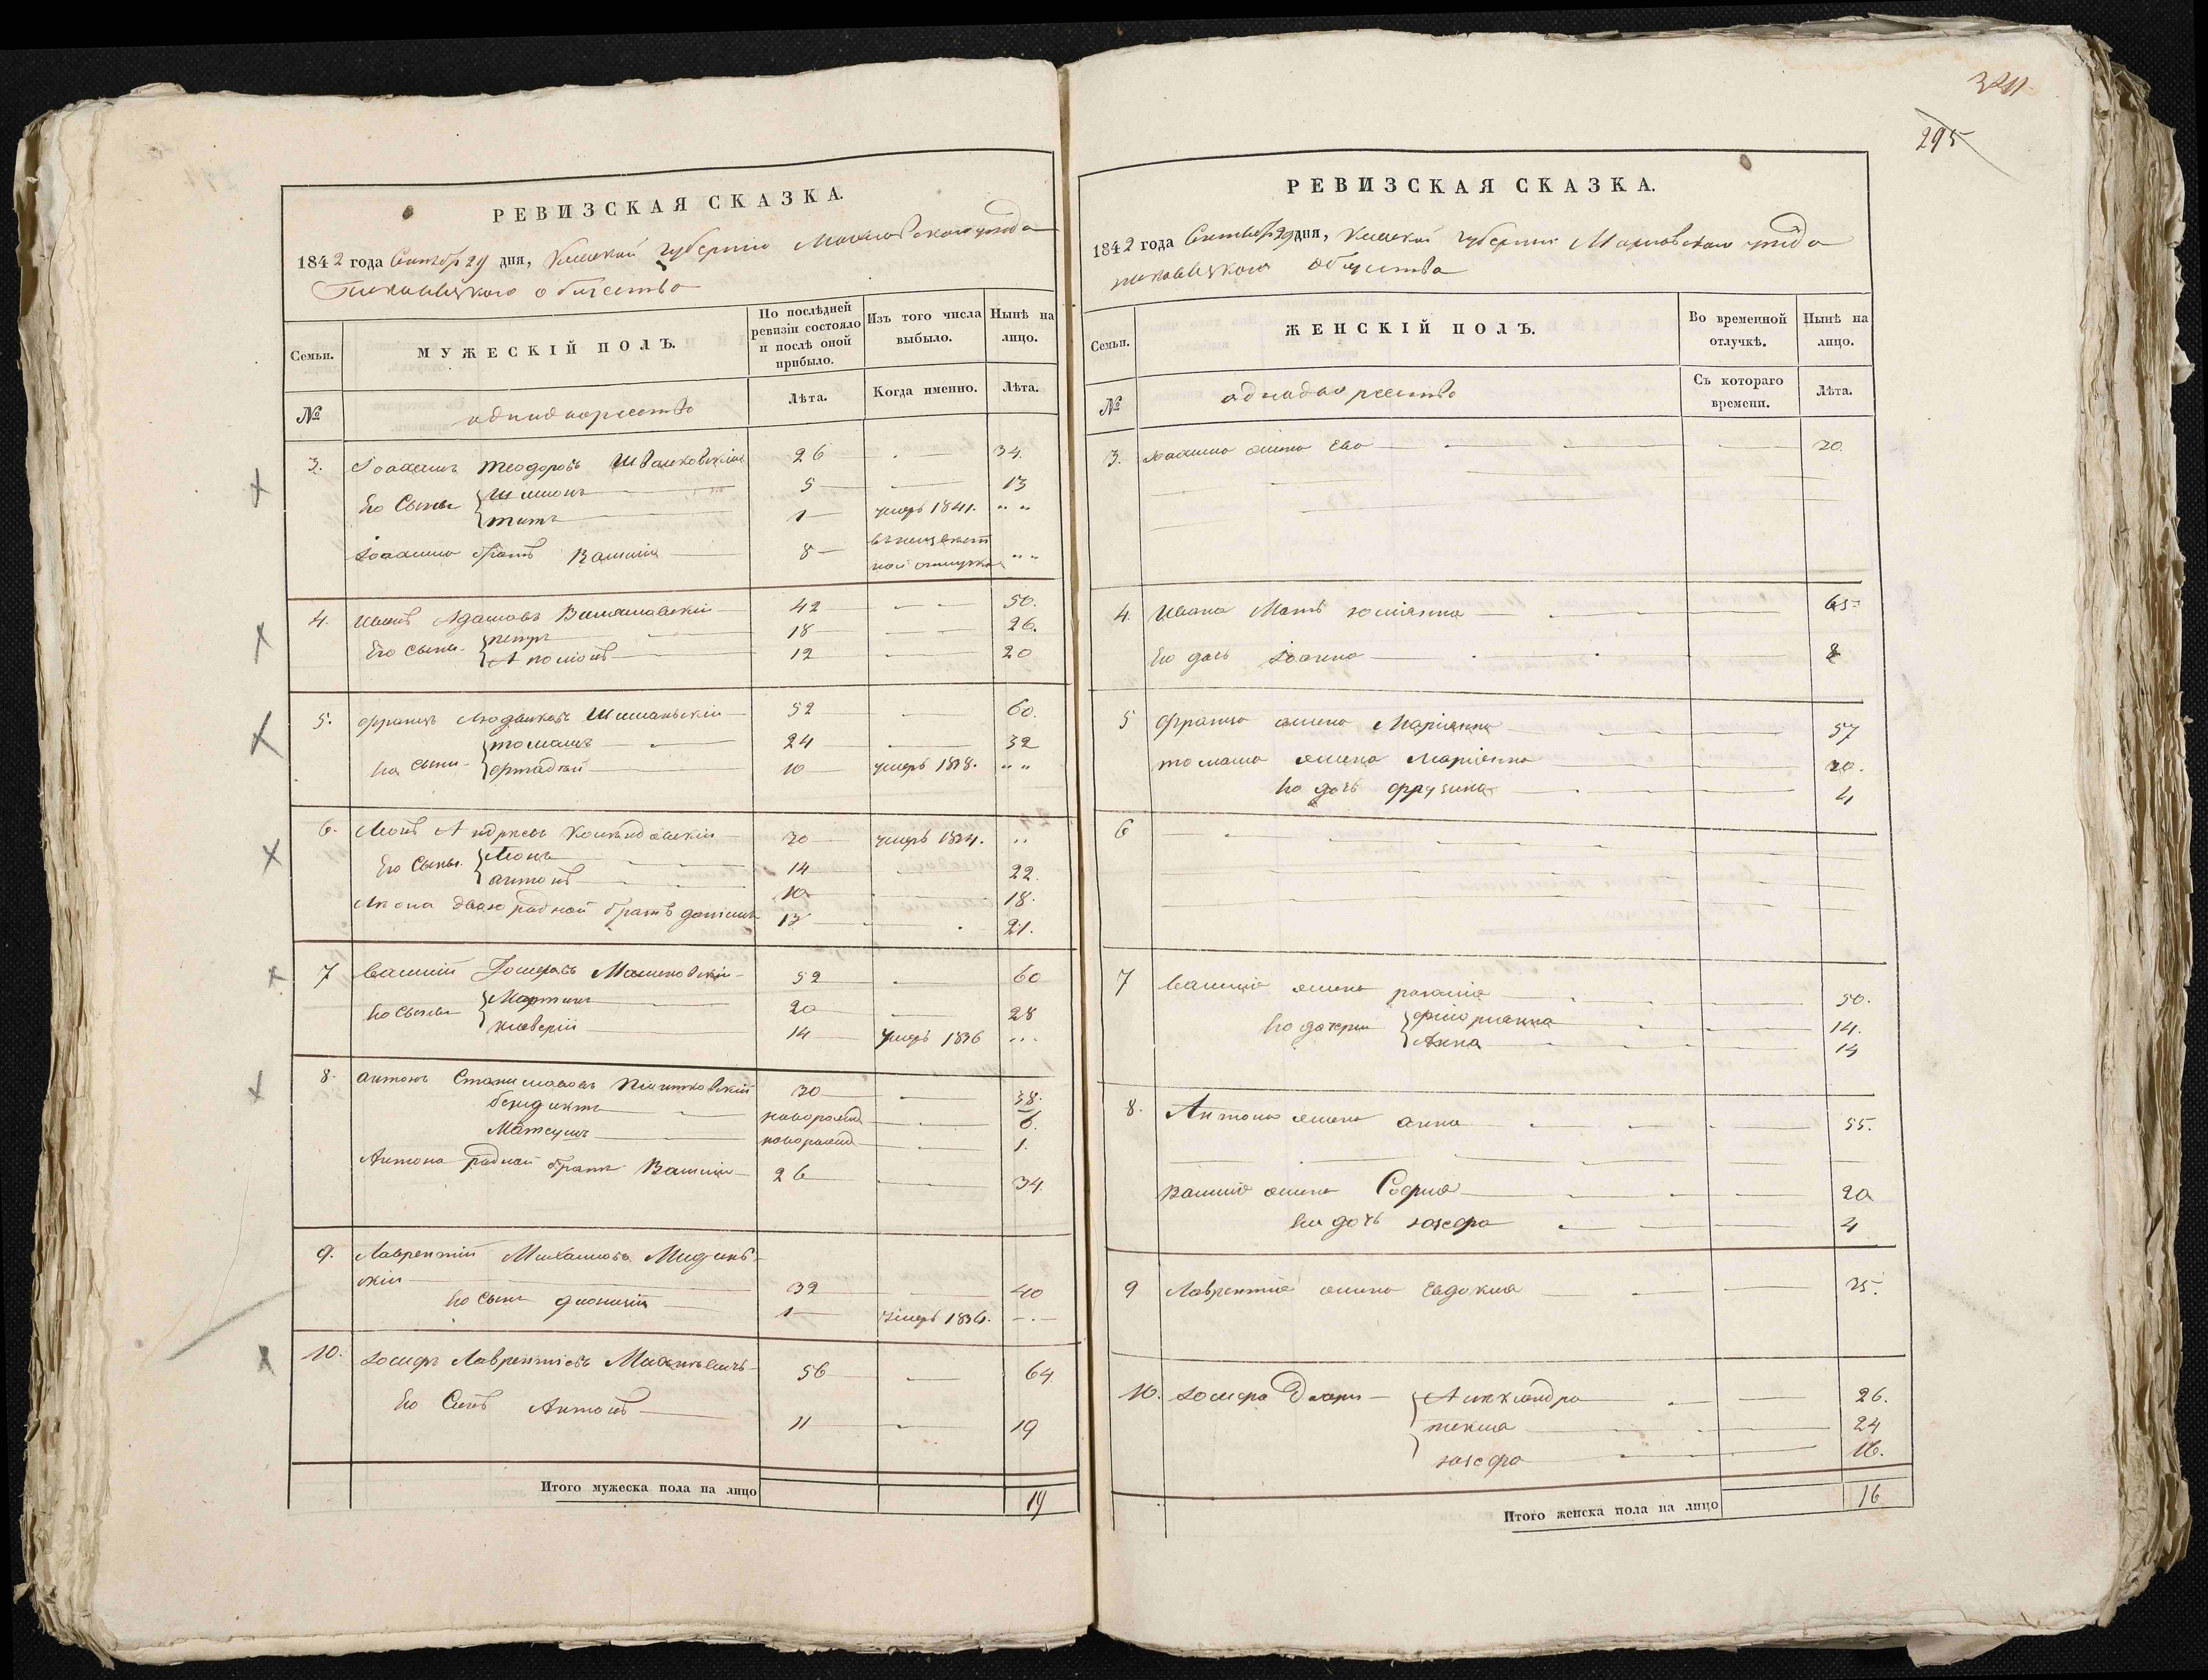 321
295
РЕВИЗСКАЯ СКАЗКА.
1842 года Сентябр 29 дня, Киевской губернии Махновского уезда
общества
Семьи.
МУЖЕСКІЙ ПОЛЪ.
По послѣдней ревизіи состояло и послѣ оной прибыло.
Изъ того числа выбыло.
Нынѣ на лицо.
№
однодворцевъ
Лѣта.
Когда именно.
Лѣта.
3. Іоахимъ Теодоровъ 26 34.
Его Сыны Шимонъ 5 13
Титъ 1 умеръ 1841. „ „
Іоахима братъ Василій 8 „ „
4. Иванъ Адамовъ 42 50.
Его сыны Петръ 18 26.
12 20
5. Францъ 52 60.
Его сыны Томашъ 24 32
Фтадей 10 умеръ 1838. „ „
6. Леонъ Андреевъ 30 умеръ 1834. „
Его Сыны Леонъ 14 22.
Антонъ 10 18.
двоюродной братъ 13 21.
7 Василій Іосифовъ 52 60
Его Сыны Мартинъ 20 28
Ксаверій 14 умеръ 1836 „
8. Антонъ Станиславовъ 30 38.
Бенедиктъ новорожд 6.
Матеушъ новорожд 1.
Антона родной братъ Василій 26 34.
9. Лаврентій Михайловъ
скій 32 40
Его Сынъ Діонизій 1 умеръ 1836.
10. Іосифъ Лаврентіевъ 56 64
Его Сынъ Антонъ 11 19
Итого мужеска пола на лицо 19
РЕВИЗСКАЯ СКАЗКА.
1842 года Сентябр 29 дня, Киевской губернии Махновского уезда
общества
Семьи.
ЖЕНСКІЙ ПОЛЪ.
Во временной отлучкѣ.
Нынѣ на лицо.
№
однодворцевъ
Съ котораго времени.
Лѣта.
3. Іоахима жена Ева 30
4. Ивана Мать Юліанна 65
Его дочь Іоанна 8
5 Франца жена Маріянна 57
Томаша жена Маріянна 20.
Его дочь Фрузина 4
6
7 Василія жена Розалія 50.
Его дочери Флоріанна 14.
Анна 14
8. Антона жена Анна 35.
Василія жена Софія 20
Его дочь Юзефа 4
9 Лаврентія жена Евдокія 35.
10. Іосифа Дочери Александра 26.
Текля 24
Юзефа 16.
Итого женска пола на лицо 16